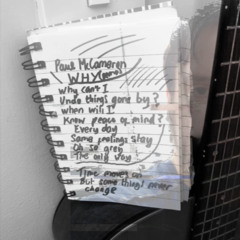 Paul McCameren
WHY (poem)
Why can't I
Undo things gone by?
when will I
Know peace of mind?
Every day
Same feelings stay
Oh so grey
The only way
Time moves on
But some things never
change